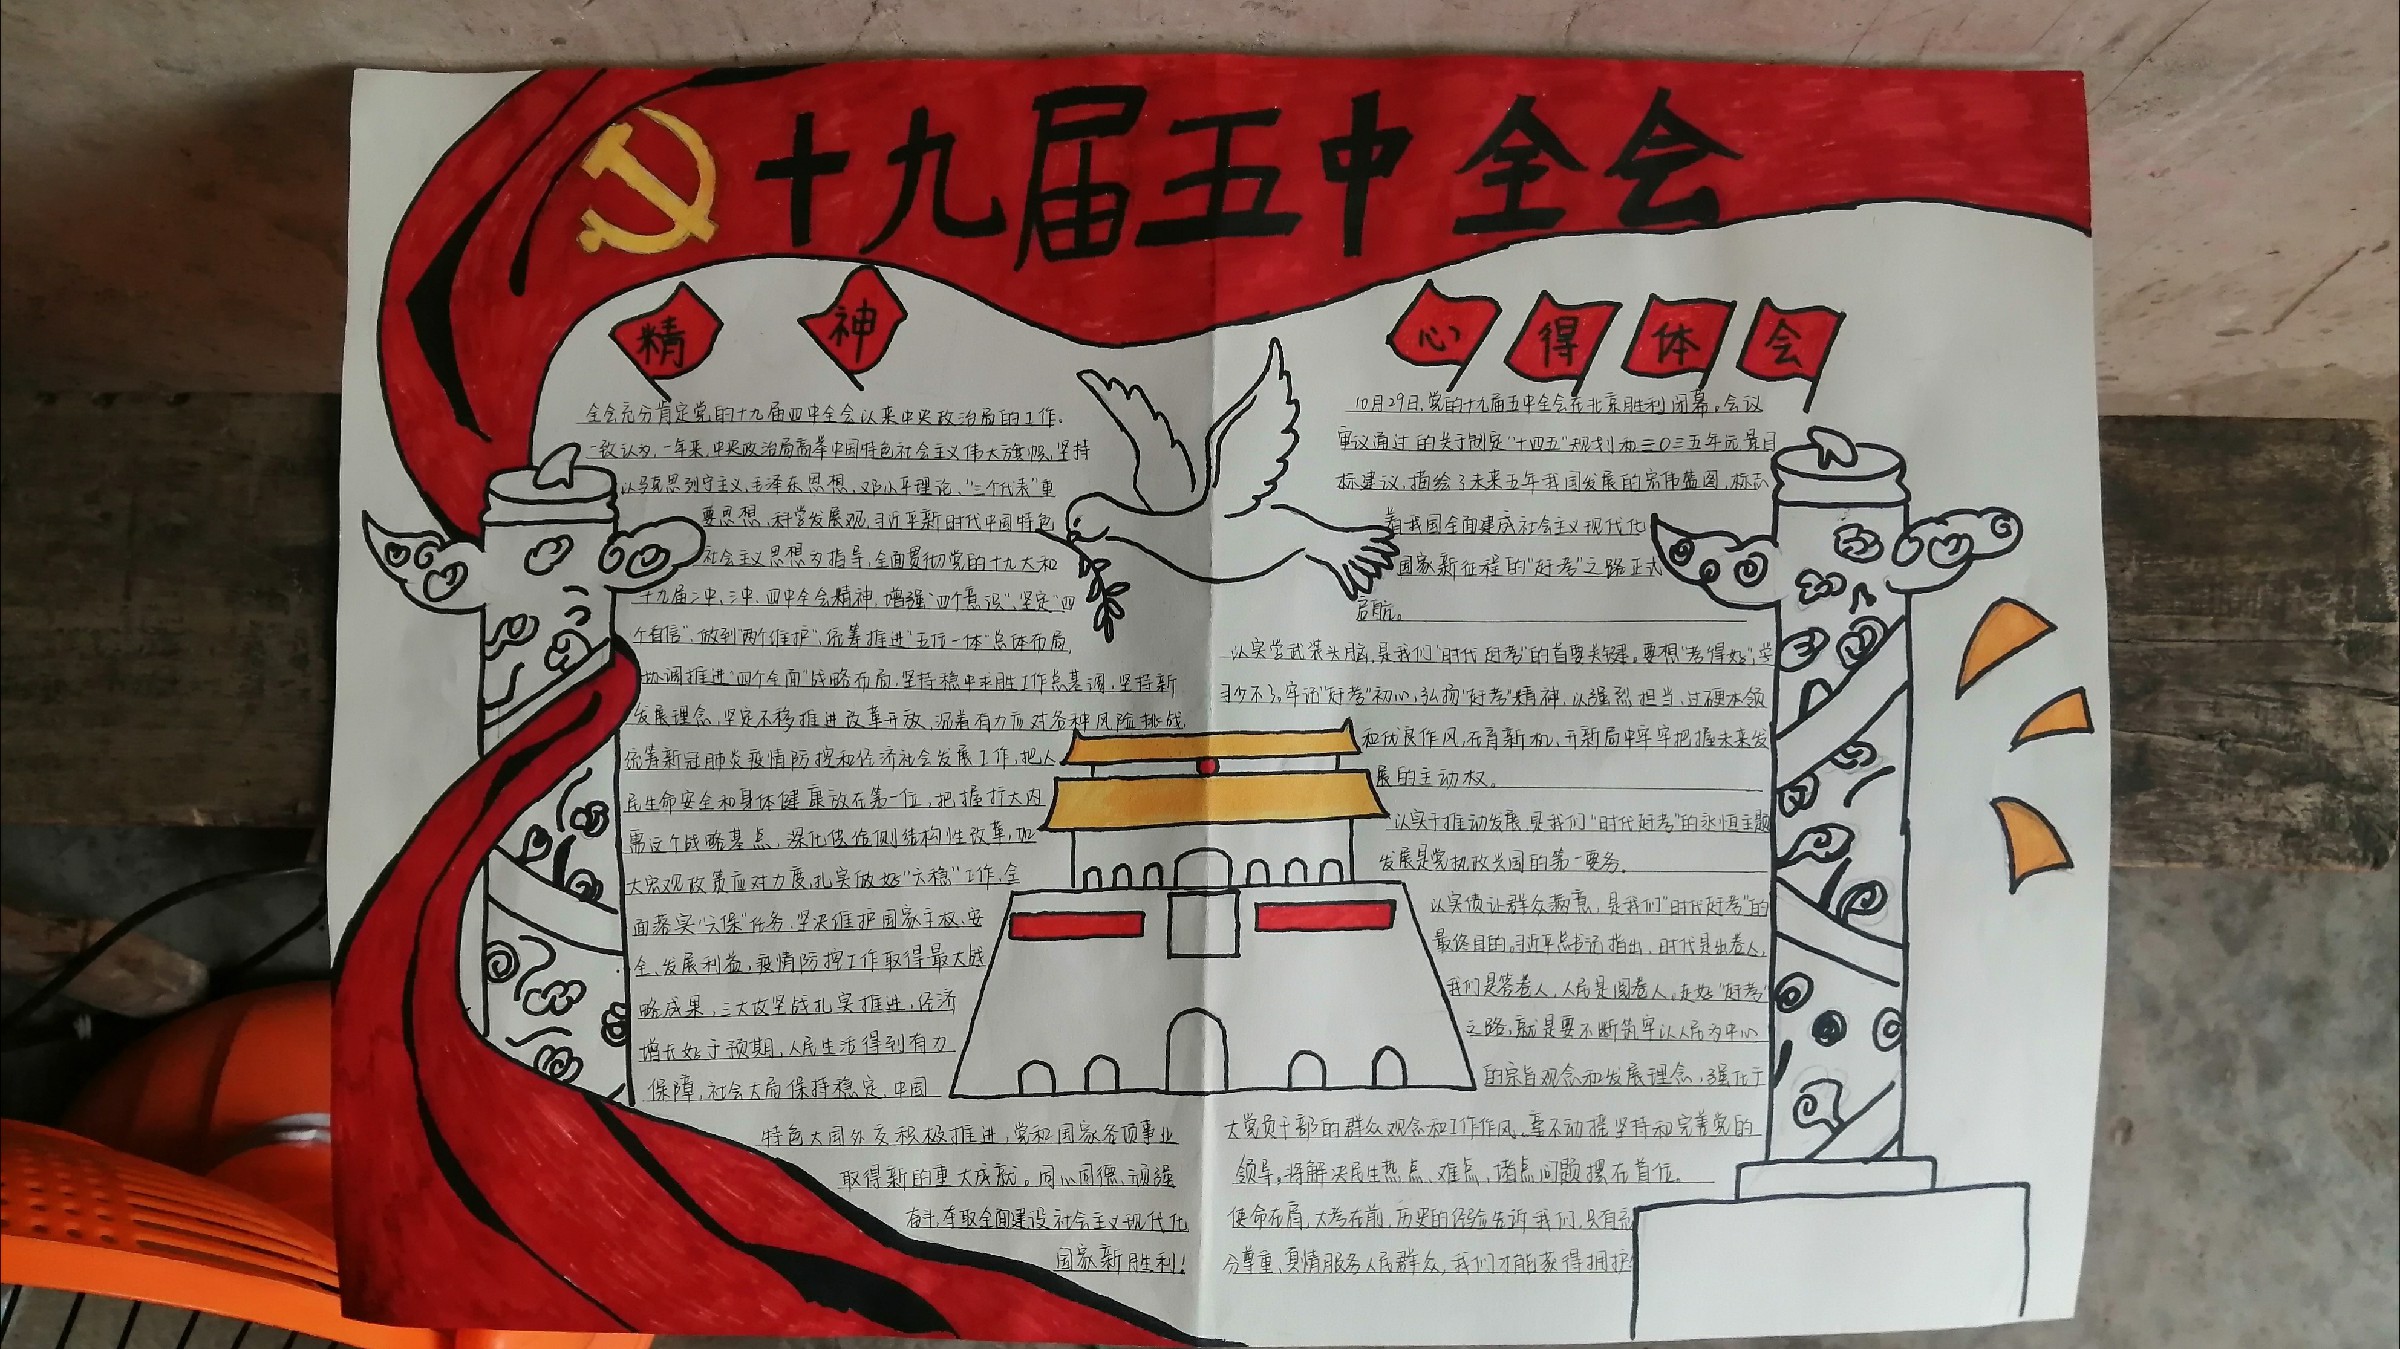 十九届五中全会
精神
全会充分肯定党的十九届四中全会以来中央政治局的工作.
一致认为,一年来,中央政治局高举中国特色社会主义伟大旗帜,坚持
以马克思列宁主义、毛泽东思想、邓小平理论、“三个代表”重
要思想、科学发展观、习近平新时代中国特色
社会主义思想为指导,全面贯彻党的十九大和
十九届二中、三中、四中全会精神,增强“四个意识”、坚定“四
个自信”、做到“两个维护”,统筹推进“五位一体”总体布局,
协调推进“四个全面”战略布局,坚持稳中求胜工作总基调,坚持新
发展理念,坚定不移推进改革开放,沉着有力应对各种风险挑战
统筹新冠肺炎疫情防控和经济社会发展工作,把人
民生命安全和身体健康放在第一位,把握扩大内
需这个战略基点,深化供给侧结构性改革,加
大宏观政策应对力度,扎实做好“六稳”工作、全
面落实“六保”任务,坚决维护国家主权、安
全、发展利益,疫情防控工作取得最大战
略成果,三大攻坚战扎实推进,经济
增长好于预期,人民生活得到有力
保障,社会大局保持稳定,中国
特色大国外交积极推进,党和国家各项事业
取得新的重大成就。同心同德,顽强
奋斗,夺取全面建设社会主义现代化
国家新胜利!
心得体会
10月29日,党的十九届五中全会在北京胜利闭幕。会议
审议通过的关于制定“十四五”规划和二〇三五年远景目
标建议,描绘了未来五年我国发展的宏伟蓝图,标志
着我国全面建成社会主义现代化
国家新征程的“赶考”之路正式
启航。
以实学武装头脑,是我们“时代赶考”的首要关键。要想“考得好”,学
习少不了,牢记“赶考”初心,弘扬“赶考”精神,以强烈担当、过硬本领
和优良作风,在育新机、开新局中牢牢把握未来发
展的主动权。
以实干推动发展,是我们“时代赶考”的永恒主题
发展是党执政兴国的第一要务。
以实绩让群众满意,是我们“时代赶考”的
最终目的。习近平总书记指出,时代是出卷人,
我们是答卷人,人民是阅卷人。走好“赶考”
之路,就是要不断筑牢以人民为中心
的宗旨观念和发展理念,强化于
大党员干部的群众观念和工作作风。毫不动摇坚持和完善党的
领导。将解决民生热点、难点、堵点问题摆在首位。
使命在肩,大考在前,历史的经验告诉我们,只有充
分尊重、真情服务人民群众,我们才能获得拥护